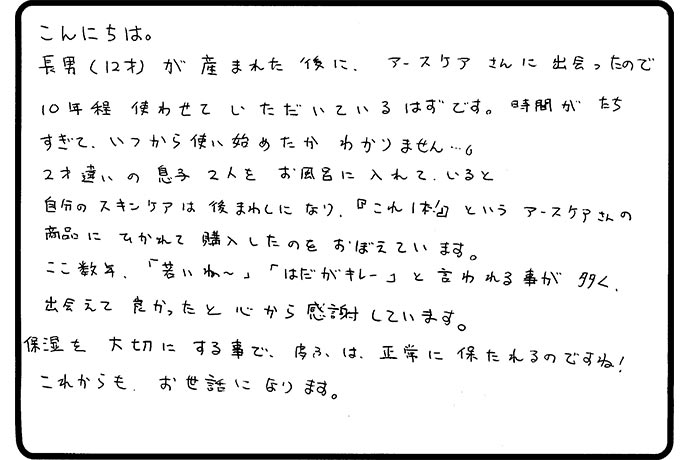 こんにちは。
長男(12才)が産まれた後に、アースケアさんに出会ったので
10年程使わせていただいているはずです。時間がたち
すぎて、いつから使い始めたかわかりません…。
2才違いの息子2人をお風呂に入れていると
自分のスキンケアは後まわしになり、『これ1本!』というアースケアさんの
商品にひかれて購入したのをおぼえています。
ここ数年、「若いね〜」「はだがキレー」と言われる事が多く、
出会えて良かったと心から感謝しています。
保湿を大切にする事で、皮ふは、正常に保たれるのですね!
これからも、お世話になります。